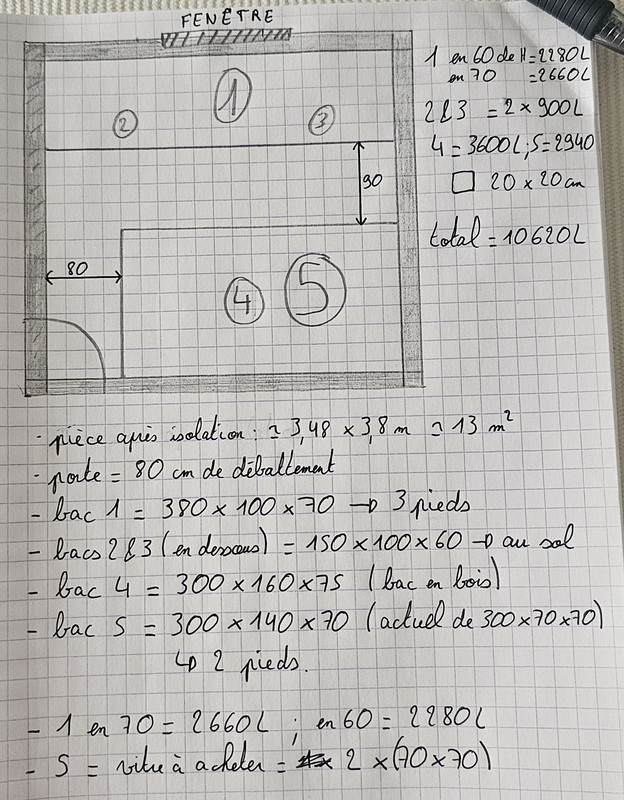 FENÊTRE
1 en 60 de H = 2280L
en 70 = 2660L
2&3 = 2 × 900L
4 = 3600L ; 5 = 2940
20 × 20 cm
total = 10620L
1
2
3
90
80
4
5
- pièce après isolation : ≃ 3,48 × 3,8 m ≃ 13 m²
- porte = 80 cm de débattement
- bac 1 = 380 × 100 × 70 → 3 pieds
- bacs 2 & 3 (en dessous) = 150 × 100 × 60 → au sol
- bac 4 = 300 × 160 × 75 (bac en bois)
- bac 5 = 300 × 140 × 70 (actuel de 300 × 70 × 70)
↳ 2 pieds.
- 1 en 70 = 2660L ; en 60 = 2280L
- 5 = vitre à acheter = 2 × (70 × 70)